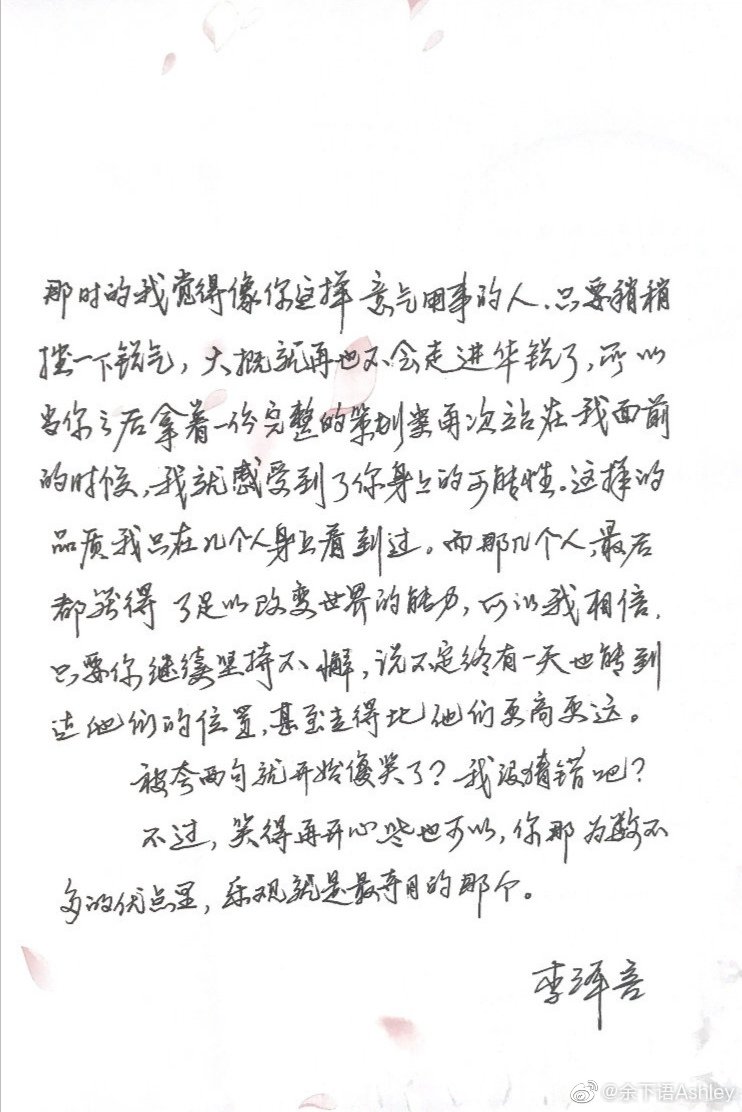 那时的我觉得像你这样意气用事的人，只要稍稍
挫一下锐气，大概就再也不会走进华锐了，所以
当你之后拿着一份完整的策划案再次站在我面前
的时候，我就感受到了你身上的可能性。这样的
品质我只在几个人身上看到过。而那几个人，最后
都获得了足以改变世界的能力，所以我相信，
只要你继续坚持不懈，说不定终有一天也能到
达他们的位置，甚至走得比他们更高更远。
被夸两句就开始傻笑了？我没猜错吧？
不过，笑得再开心些也可以，你那为数不
多的优点里，乐观就是最夺目的那个。
李泽言
@余下语Ashley